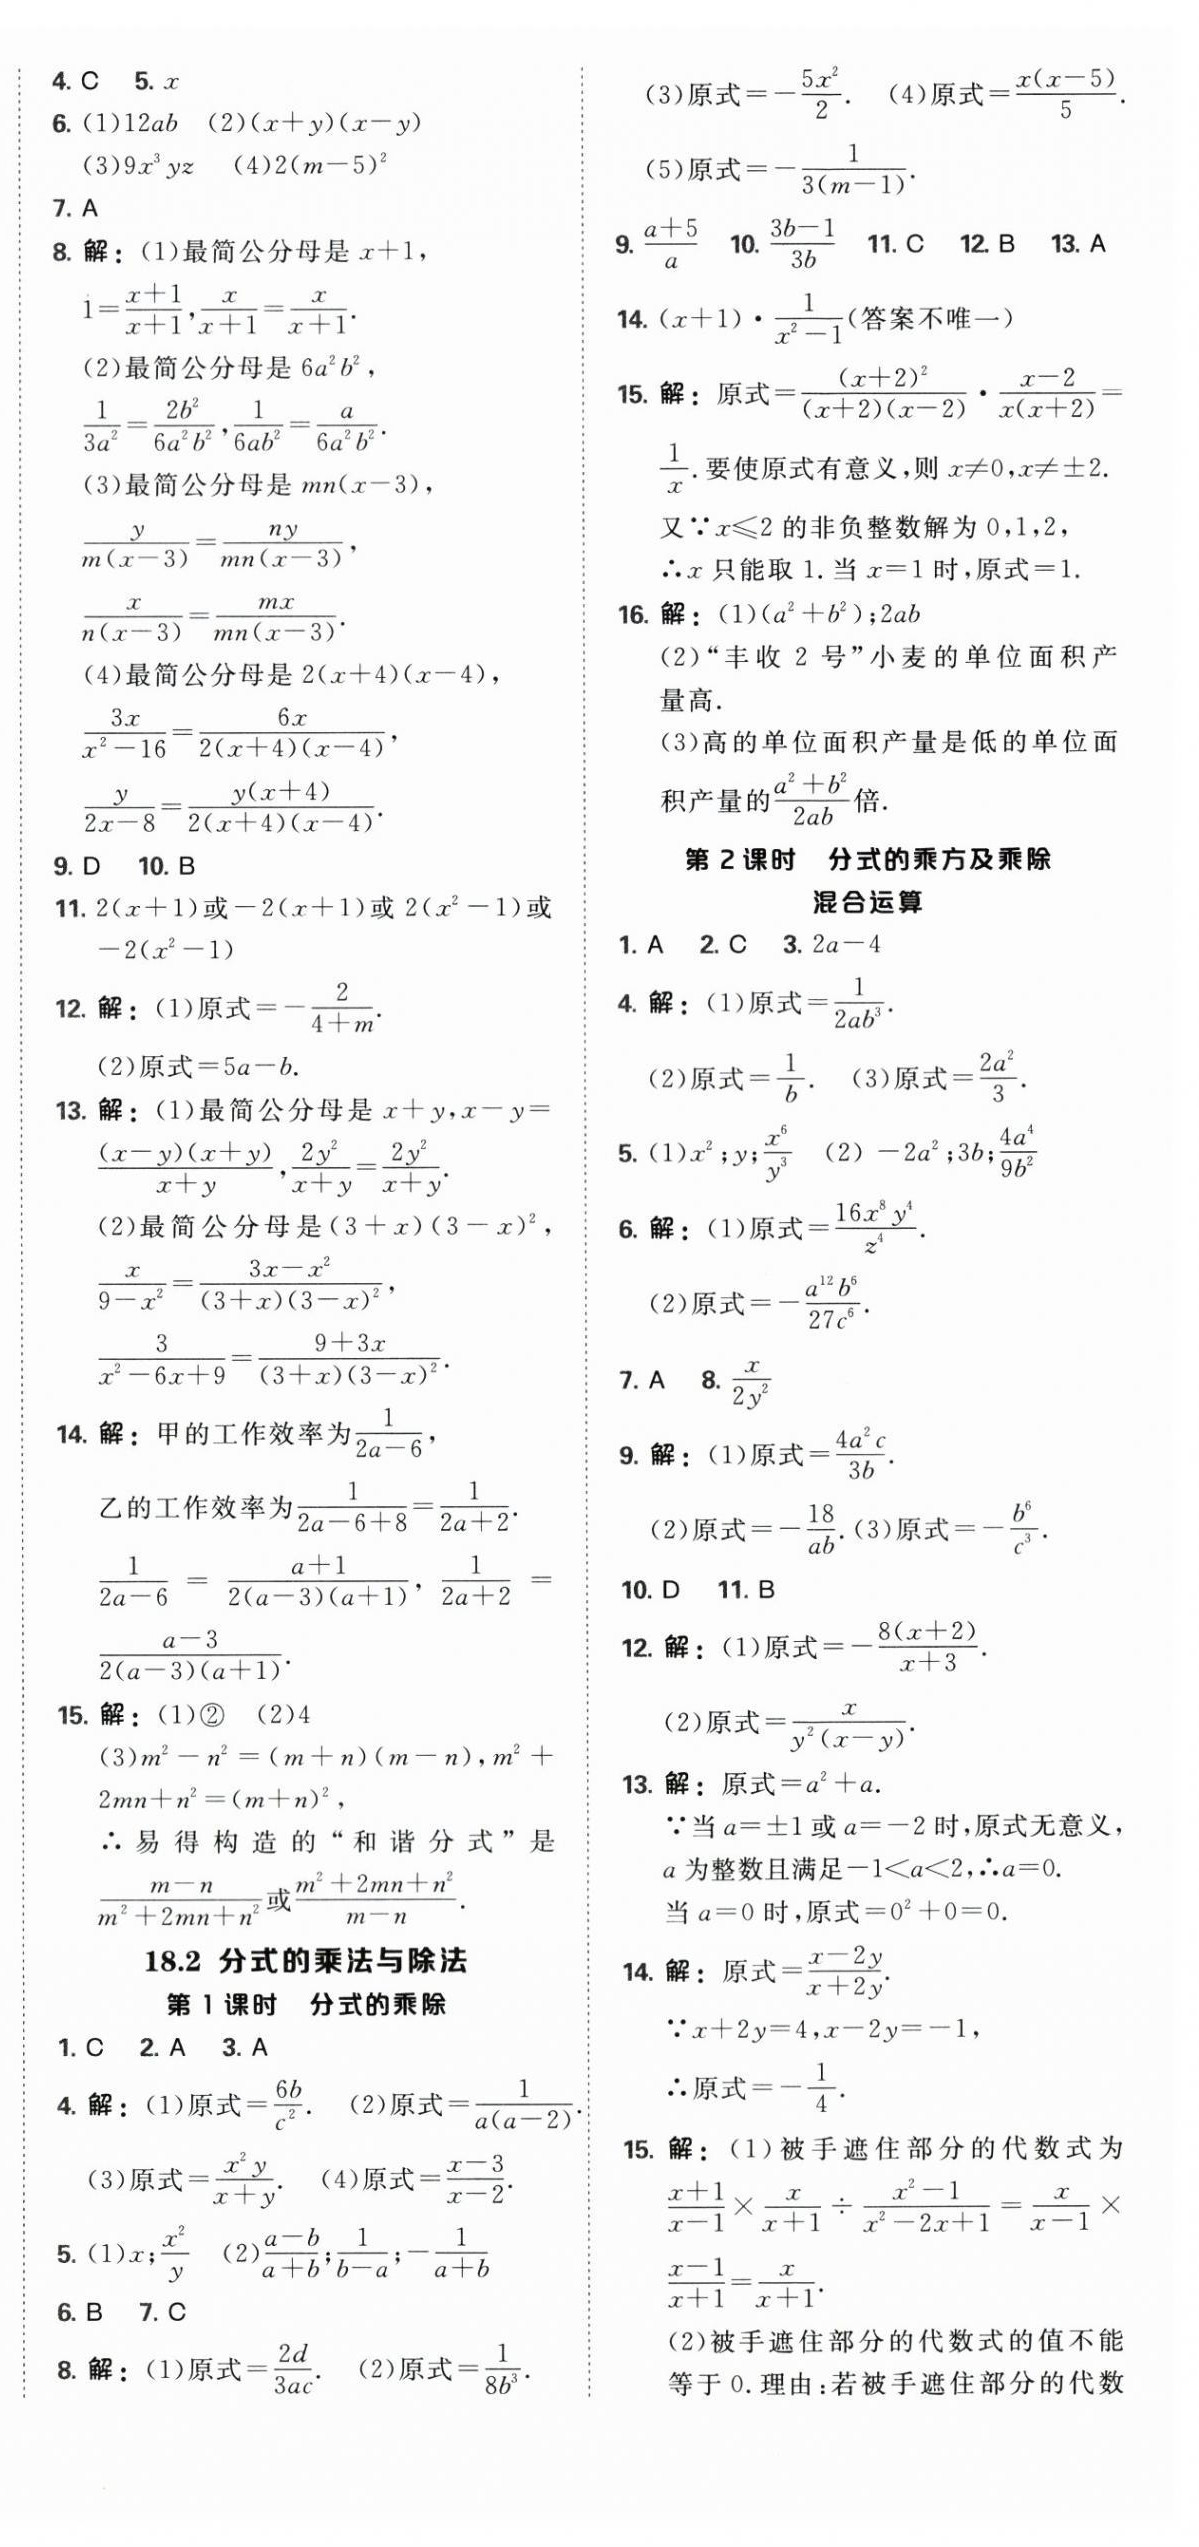 4. C  5. x
6. (1)12ab  (2)(x+y)(x−y)
(3)9x³yz  (4)2(m−5)²
7. A
8. 解：(1)最简公分母是 x+1，
1=\frac{x+1}{x+1}，\frac{x}{x+1}=\frac{x}{x+1}.
(2)最简公分母是 6a²b²，
\frac{1}{3a²}=\frac{2b²}{6a²b²}，\frac{1}{6ab²}=\frac{a}{6a²b²}.
(3)最简公分母是 mn(x−3)，
\frac{y}{m(x−3)}=\frac{ny}{mn(x−3)}，
\frac{x}{n(x−3)}=\frac{mx}{mn(x−3)}.
(4)最简公分母是 2(x+4)(x−4)，
\frac{3x}{x²−16}=\frac{6x}{2(x+4)(x−4)}，
\frac{y}{2x−8}=\frac{y(x+4)}{2(x+4)(x−4)}.
9. D  10. B
11. 2(x+1)或−2(x+1)或 2(x²−1)或
−2(x²−1)
12. 解：(1)原式=−\frac{2}{4+m}.
(2)原式=5a−b.
13. 解：(1)最简公分母是 x+y，x−y=
\frac{(x−y)(x+y)}{x+y}，\frac{2y²}{x+y}=\frac{2y²}{x+y}.
(2)最简公分母是(3+x)(3−x)²，
\frac{x}{9−x²}=\frac{3x−x²}{(3+x)(3−x)²}，
\frac{3}{x²−6x+9}=\frac{9+3x}{(3+x)(3−x)²}.
14. 解：甲的工作效率为\frac{1}{2a−6}，
乙的工作效率为\frac{1}{2a−6+8}=\frac{1}{2a+2}.
\frac{1}{2a−6}=\frac{a+1}{2(a−3)(a+1)}，\frac{1}{2a+2}=
\frac{a−3}{2(a−3)(a+1)}.
15. 解：(1)②  (2)4
(3)m²−n²=(m+n)(m−n)，m²+
2mn+n²=(m+n)²，
∴易得构造的“和谐分式”是
\frac{m−n}{m²+2mn+n²}或\frac{m²+2mn+n²}{m−n}.
18.2 分式的乘法与除法
第 1 课时  分式的乘除
1. C  2. A  3. A
4. 解：(1)原式=\frac{6b}{c²}.  (2)原式=\frac{1}{a(a−2)}.
(3)原式=\frac{x²y}{x+y}.  (4)原式=\frac{x−3}{x−2}.
5. (1)x；\frac{x²}{y}  (2)\frac{a−b}{a+b}；\frac{1}{b−a}；−\frac{1}{a+b}
6. B  7. C
8. 解：(1)原式=\frac{2d}{3ac}.  (2)原式=\frac{1}{8b³}.
(3)原式=−\frac{5x²}{2}.  (4)原式=\frac{x(x−5)}{5}.
(5)原式=−\frac{1}{3(m−1)}.
9. \frac{a+5}{a}  10. \frac{3b−1}{3b}  11. C  12. B  13. A
14. (x+1)·\frac{1}{x²−1}(答案不唯一)
15. 解：原式=\frac{(x+2)²}{(x+2)(x−2)}·\frac{x−2}{x(x+2)}=
\frac{1}{x}.要使原式有意义，则 x≠0，x≠±2.
又∵x≤2 的非负整数解为 0，1，2，
∴x 只能取 1.当 x=1 时，原式=1.
16. 解：(1)(a²+b²)；2ab
(2)“丰收 2 号”小麦的单位面积产
量高.
(3)高的单位面积产量是低的单位面
积产量的\frac{a²+b²}{2ab}倍.
第 2 课时  分式的乘方及乘除
混合运算
1. A  2. C  3. 2a−4
4. 解：(1)原式=\frac{1}{2ab³}.
(2)原式=\frac{1}{b}.  (3)原式=\frac{2a²}{3}.
5. (1)x²；y；\frac{x⁶}{y³}  (2)−2a²；3b；\frac{4a⁴}{9b²}
6. 解：(1)原式=\frac{16x⁸y⁴}{z⁴}.
(2)原式=−\frac{a¹²b⁶}{27c⁶}.
7. A  8. \frac{x}{2y²}
9. 解：(1)原式=\frac{4a²c}{3b}.
(2)原式=−\frac{18}{ab}.(3)原式=−\frac{b⁶}{c³}.
10. D  11. B
12. 解：(1)原式=−\frac{8(x+2)}{x+3}.
(2)原式=\frac{x}{y²(x−y)}.
13. 解：原式=a²+a.
∵当 a=±1 或 a=−2 时，原式无意义，
a 为整数且满足−1<a<2，∴a=0.
当 a=0 时，原式=0²+0=0.
14. 解：原式=\frac{x−2y}{x+2y}.
∵x+2y=4，x−2y=−1，
∴原式=−\frac{1}{4}.
15. 解：(1)被手遮住部分的代数式为
\frac{x+1}{x−1}×\frac{x}{x+1}÷\frac{x²−1}{x²−2x+1}=\frac{x}{x−1}×
\frac{x−1}{x+1}=\frac{x}{x+1}.
(2)被手遮住部分的代数式的值不能
等于 0.理由：若被手遮住部分的代数